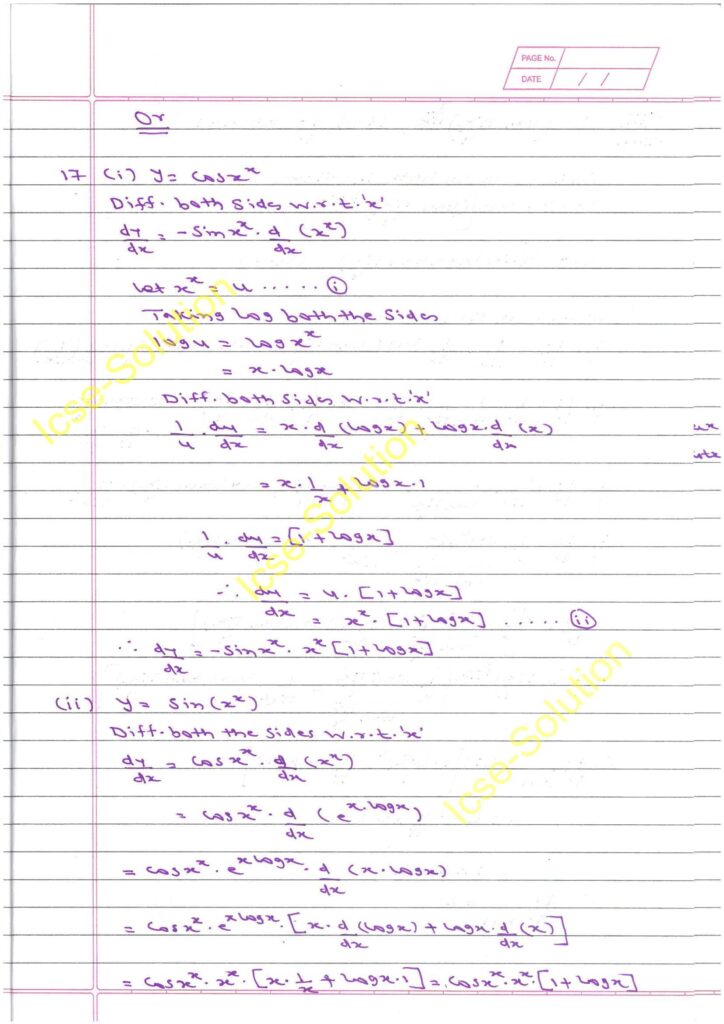 PAGE No.
DATE / /
Or
17 (i) y = cos x^x
Diff. both Sides w.r.t. 'x'
dy/dx = -Sin x^x . d/dx (x^x)
Let x^x = u ..... (i)
Taking log both the Sides
log u = log x^x
= x . log x
Diff. both Sides w.r.t. 'x'
1/u . du/dx = x . d/dx (log x) + log x . d/dx (x)
= x . 1/x + log x . 1
1/u . du/dx = [1 + log x]
∴ du/dx = u . [1 + log x]
= x^x . [1 + log x] ..... (ii)
∴ dy/dx = -Sin x^x . x^x [1 + log x]
(ii) y = Sin (x^x)
Diff. both the Sides w.r.t. 'x'
dy/dx = cos x^x . d/dx (x^x)
= cos x^x . d/dx (e^x.log x)
= cos x^x . e^x log x . d/dx (x . log x)
= cos x^x . e^x log x . [x . d/dx (log x) + log x . d/dx (x)]
= cos x^x . x^x . [x . 1/x + log x . 1] = cos x^x . x^x . [1 + log x]
Icse-Solution
Icse-Solution
Icse-Solution